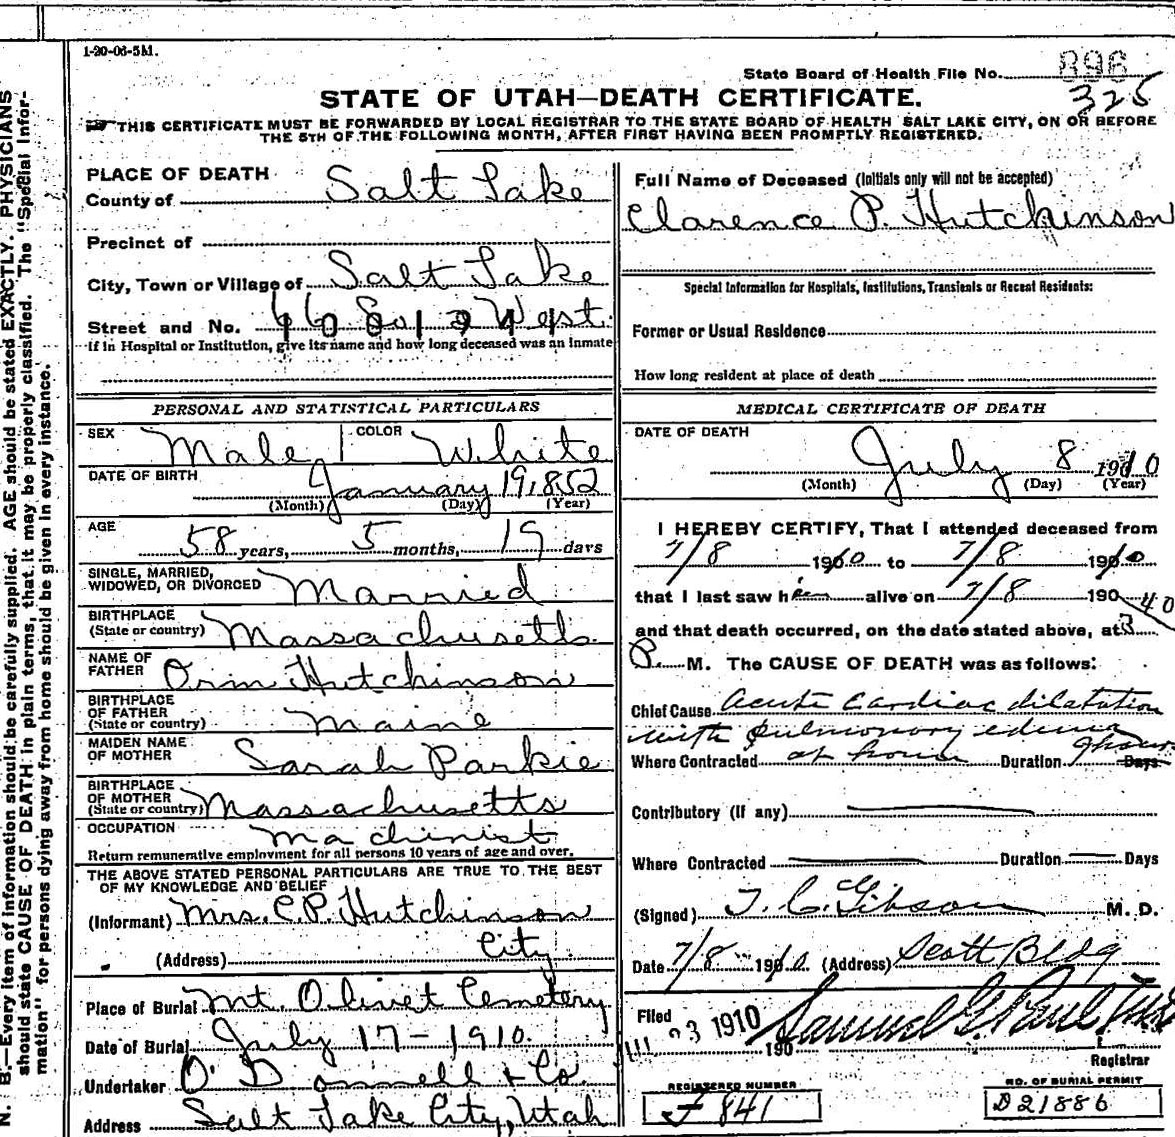 1-20-06-5M.
State Board of Health File No. 896
325
STATE OF UTAH—DEATH CERTIFICATE.
THIS CERTIFICATE MUST BE FORWARDED BY LOCAL REGISTRAR TO THE STATE BOARD OF HEALTH SALT LAKE CITY, ON OR BEFORE
THE 5TH OF THE FOLLOWING MONTH, AFTER FIRST HAVING BEEN PROMPTLY REGISTERED.
PLACE OF DEATH
County of Salt Lake
Precinct of
City, Town or Village of Salt Lake
Street and No. West.
If in Hospital or Institution, give its name and how long deceased was an inmate
PERSONAL AND STATISTICAL PARTICULARS
SEX Male COLOR White
DATE OF BIRTH January 19, 1852
(Month) (Day) (Year)
AGE 58 years, 5 months, 19 days
SINGLE, MARRIED,
WIDOWED, OR DIVORCED Married
BIRTHPLACE
(State or country) Massachusetts.
NAME OF
FATHER Orin Hutchinson
BIRTHPLACE
OF FATHER
(State or country) Maine
MAIDEN NAME
OF MOTHER Sarah Parkie
BIRTHPLACE
OF MOTHER
(State or country) Massachusetts
OCCUPATION Machinist
Return remunerative employment for all persons 10 years of age and over.
THE ABOVE STATED PERSONAL PARTICULARS ARE TRUE TO THE BEST
OF MY KNOWLEDGE AND BELIEF
(Informant) Mrs. C. P. Hutchinson
(Address) City
Place of Burial Mt. Olivet Cemetery
Date of Burial July 17-1910.
Undertaker O'Donnell & Co.
Address Salt Lake City, Utah
Full Name of Deceased (Initials only will not be accepted)
Clarence P. Hutchinson
Special Information for Hospitals, Institutions, Transients or Recent Residents:
Former or Usual Residence
How long resident at place of death
MEDICAL CERTIFICATE OF DEATH
DATE OF DEATH
July 8 1910
(Month) (Day) (Year)
I HEREBY CERTIFY, That I attended deceased from
7/8 1910 to 7/8 1910
that I last saw him alive on 7/8 190
and that death occurred, on the date stated above, at 3 40
P. M. The CAUSE OF DEATH was as follows:
Chief Cause Acute Cardiac dilatation
with pulmonary edema
Where Contracted at home Duration 9 hours Days
Contributory (if any)
Where Contracted Duration Days
(Signed) T. C. Gibson M. D.
Date 7/8 1910 (Address) Scott Bldg
Filed 23 1910 190 Samuel G. Paul
Registrar
REGISTERED NUMBER
J 841
NO. OF BURIAL PERMIT
D21886
N. B.—Every item of information should be carefully supplied. AGE should be stated EXACTLY. PHYSICIANS
should state CAUSE OF DEATH in plain terms, that it may be properly classified. The "Special Infor-
mation" for persons dying away from home should be given in every instance.